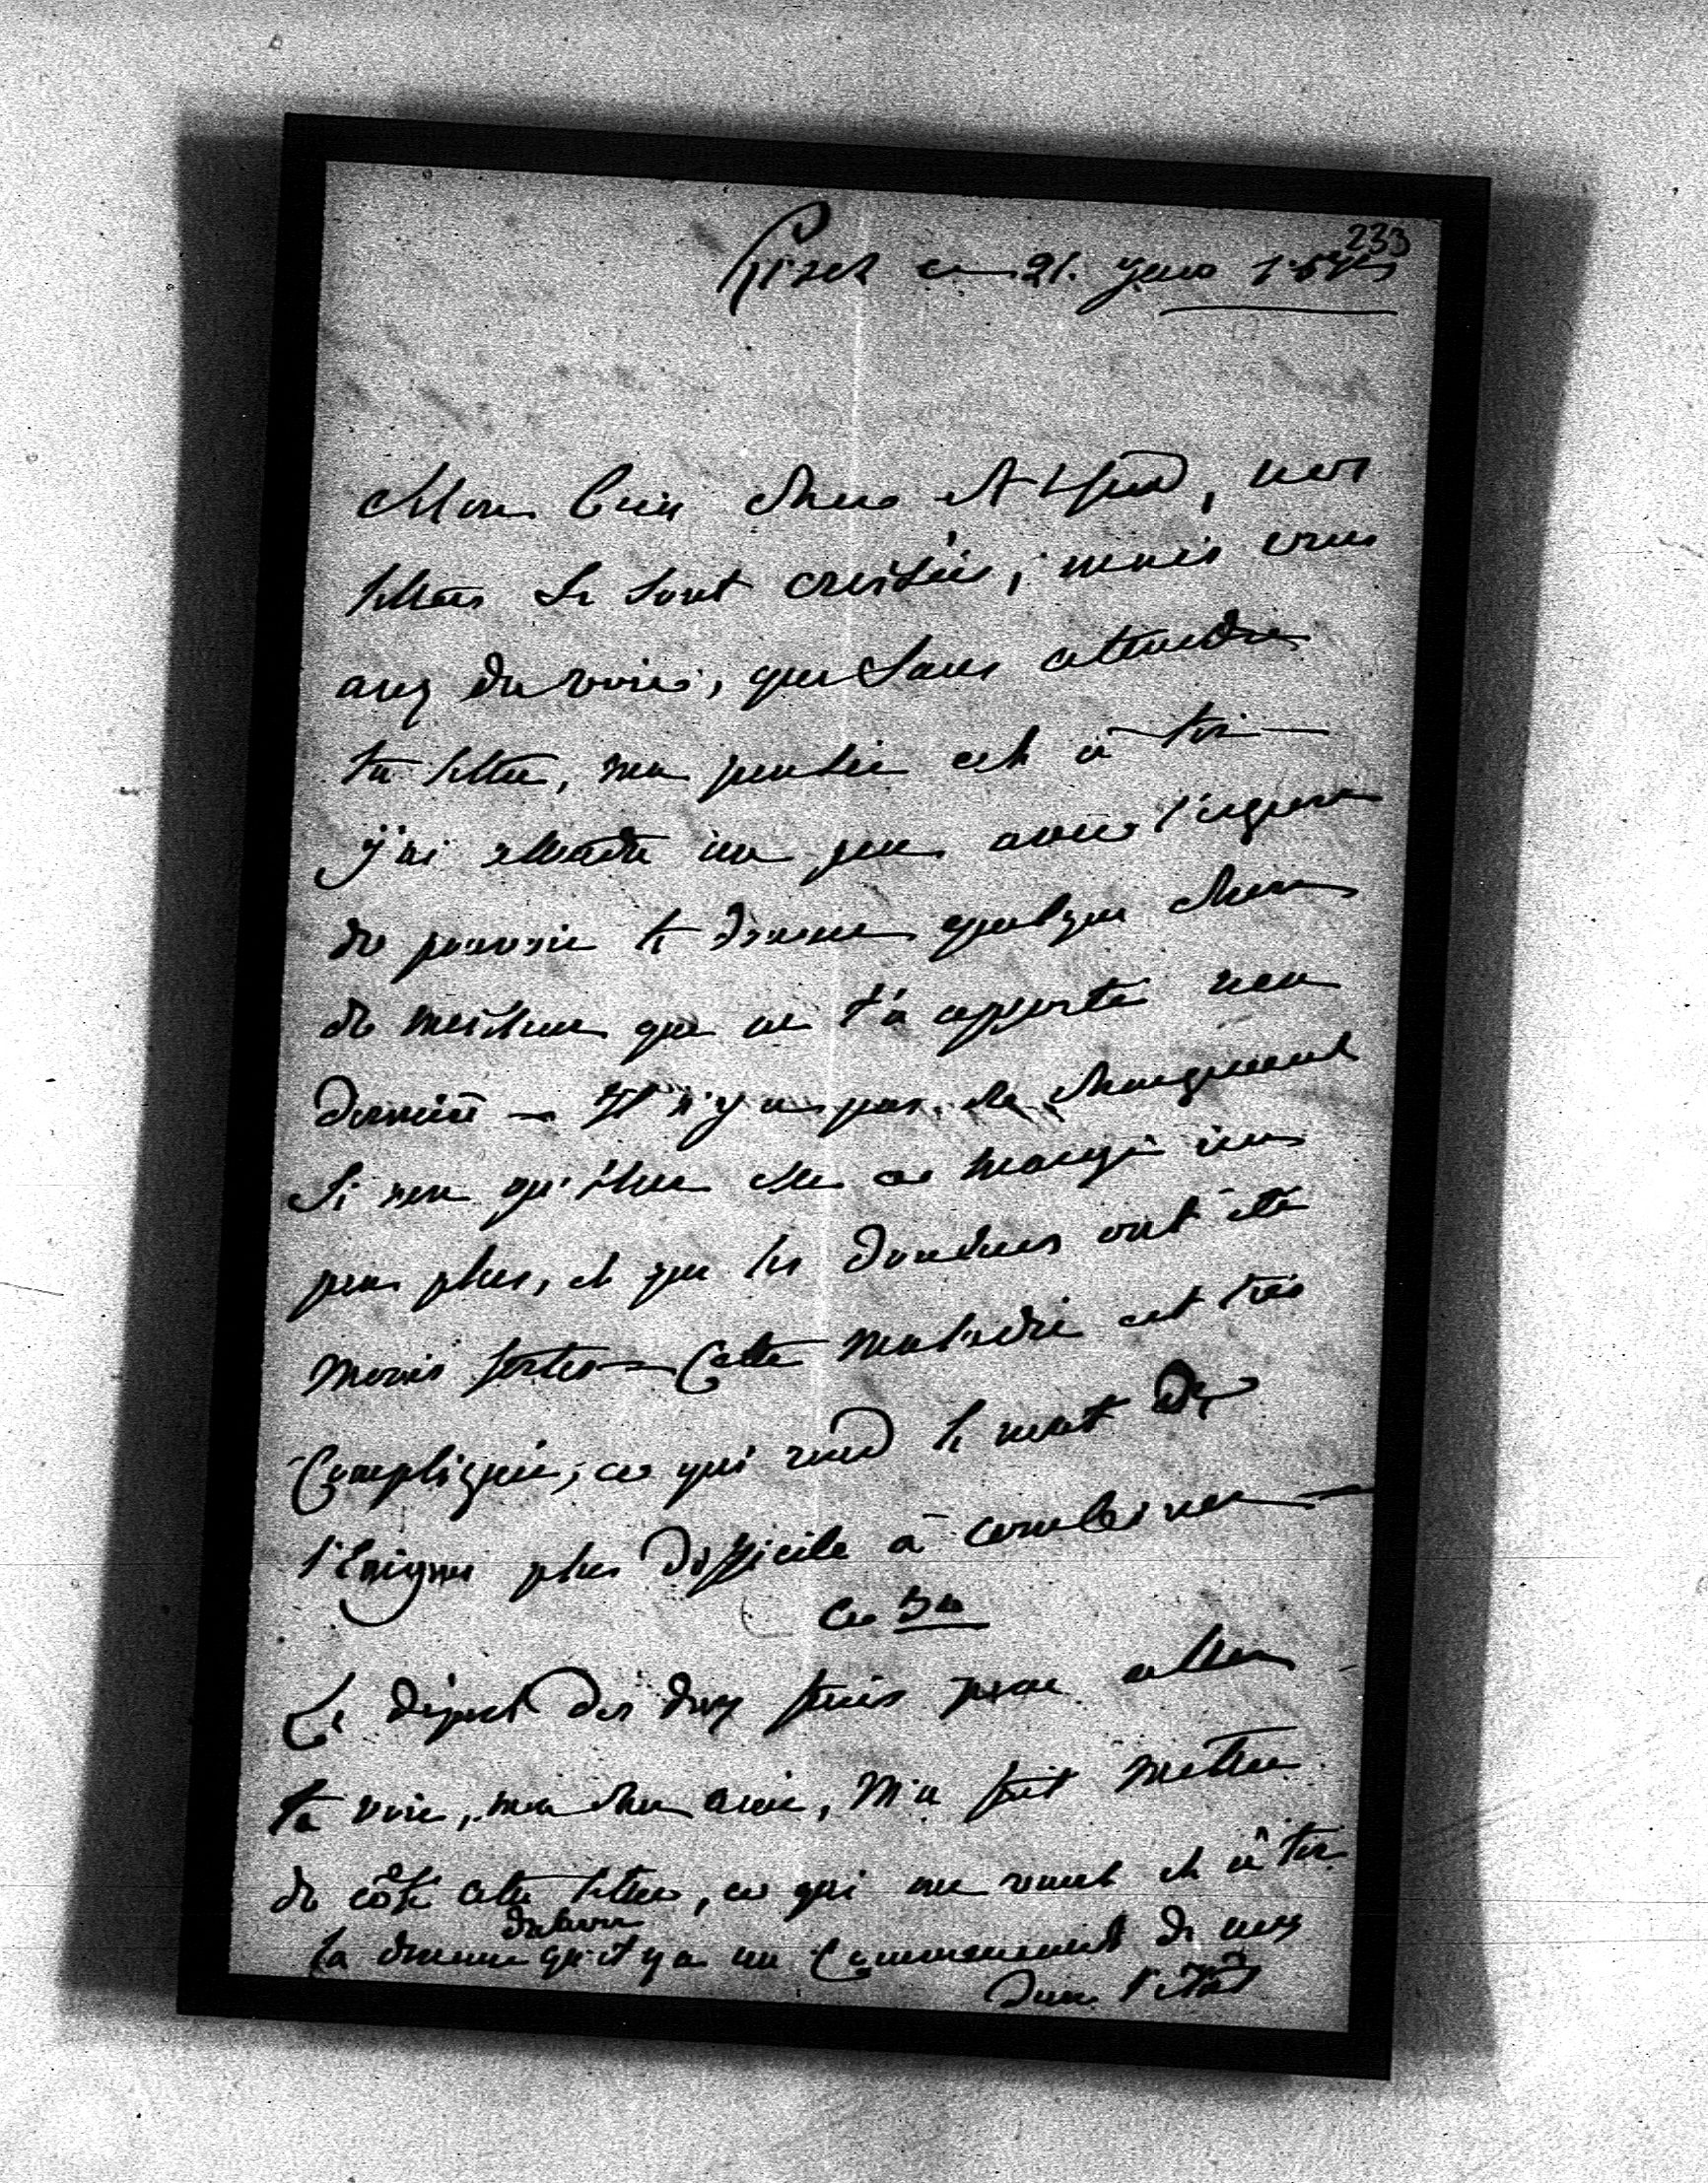 233
ce 21. 
Mon bien cher Alfred, nos
lettres se sont croisées; mais vous
avez du voir, que sans attendre
ta lettre, ma pensée est à toi —
j'ai attendu un peu avec l'espoir
de pouvoir te donner quelque chose
de meilleur que ne t'a apporté ma
dernière — Il n'y a pas de changement
si non qu'hier elle a mangé un
peu plus, et que les douleurs ont été
moins fortes — Cette maladie est très
Compliquée, ce qui rend le mot de
l'Enigme plus difficile à combiner —
Ce
Le départ des deux pour aller
te voir, mon cher ami, m'a fait mettre
de côté cette lettre, ce qui me vaut et à toi
la douceur qu'il y a un Commencement de mieux
dans l'état